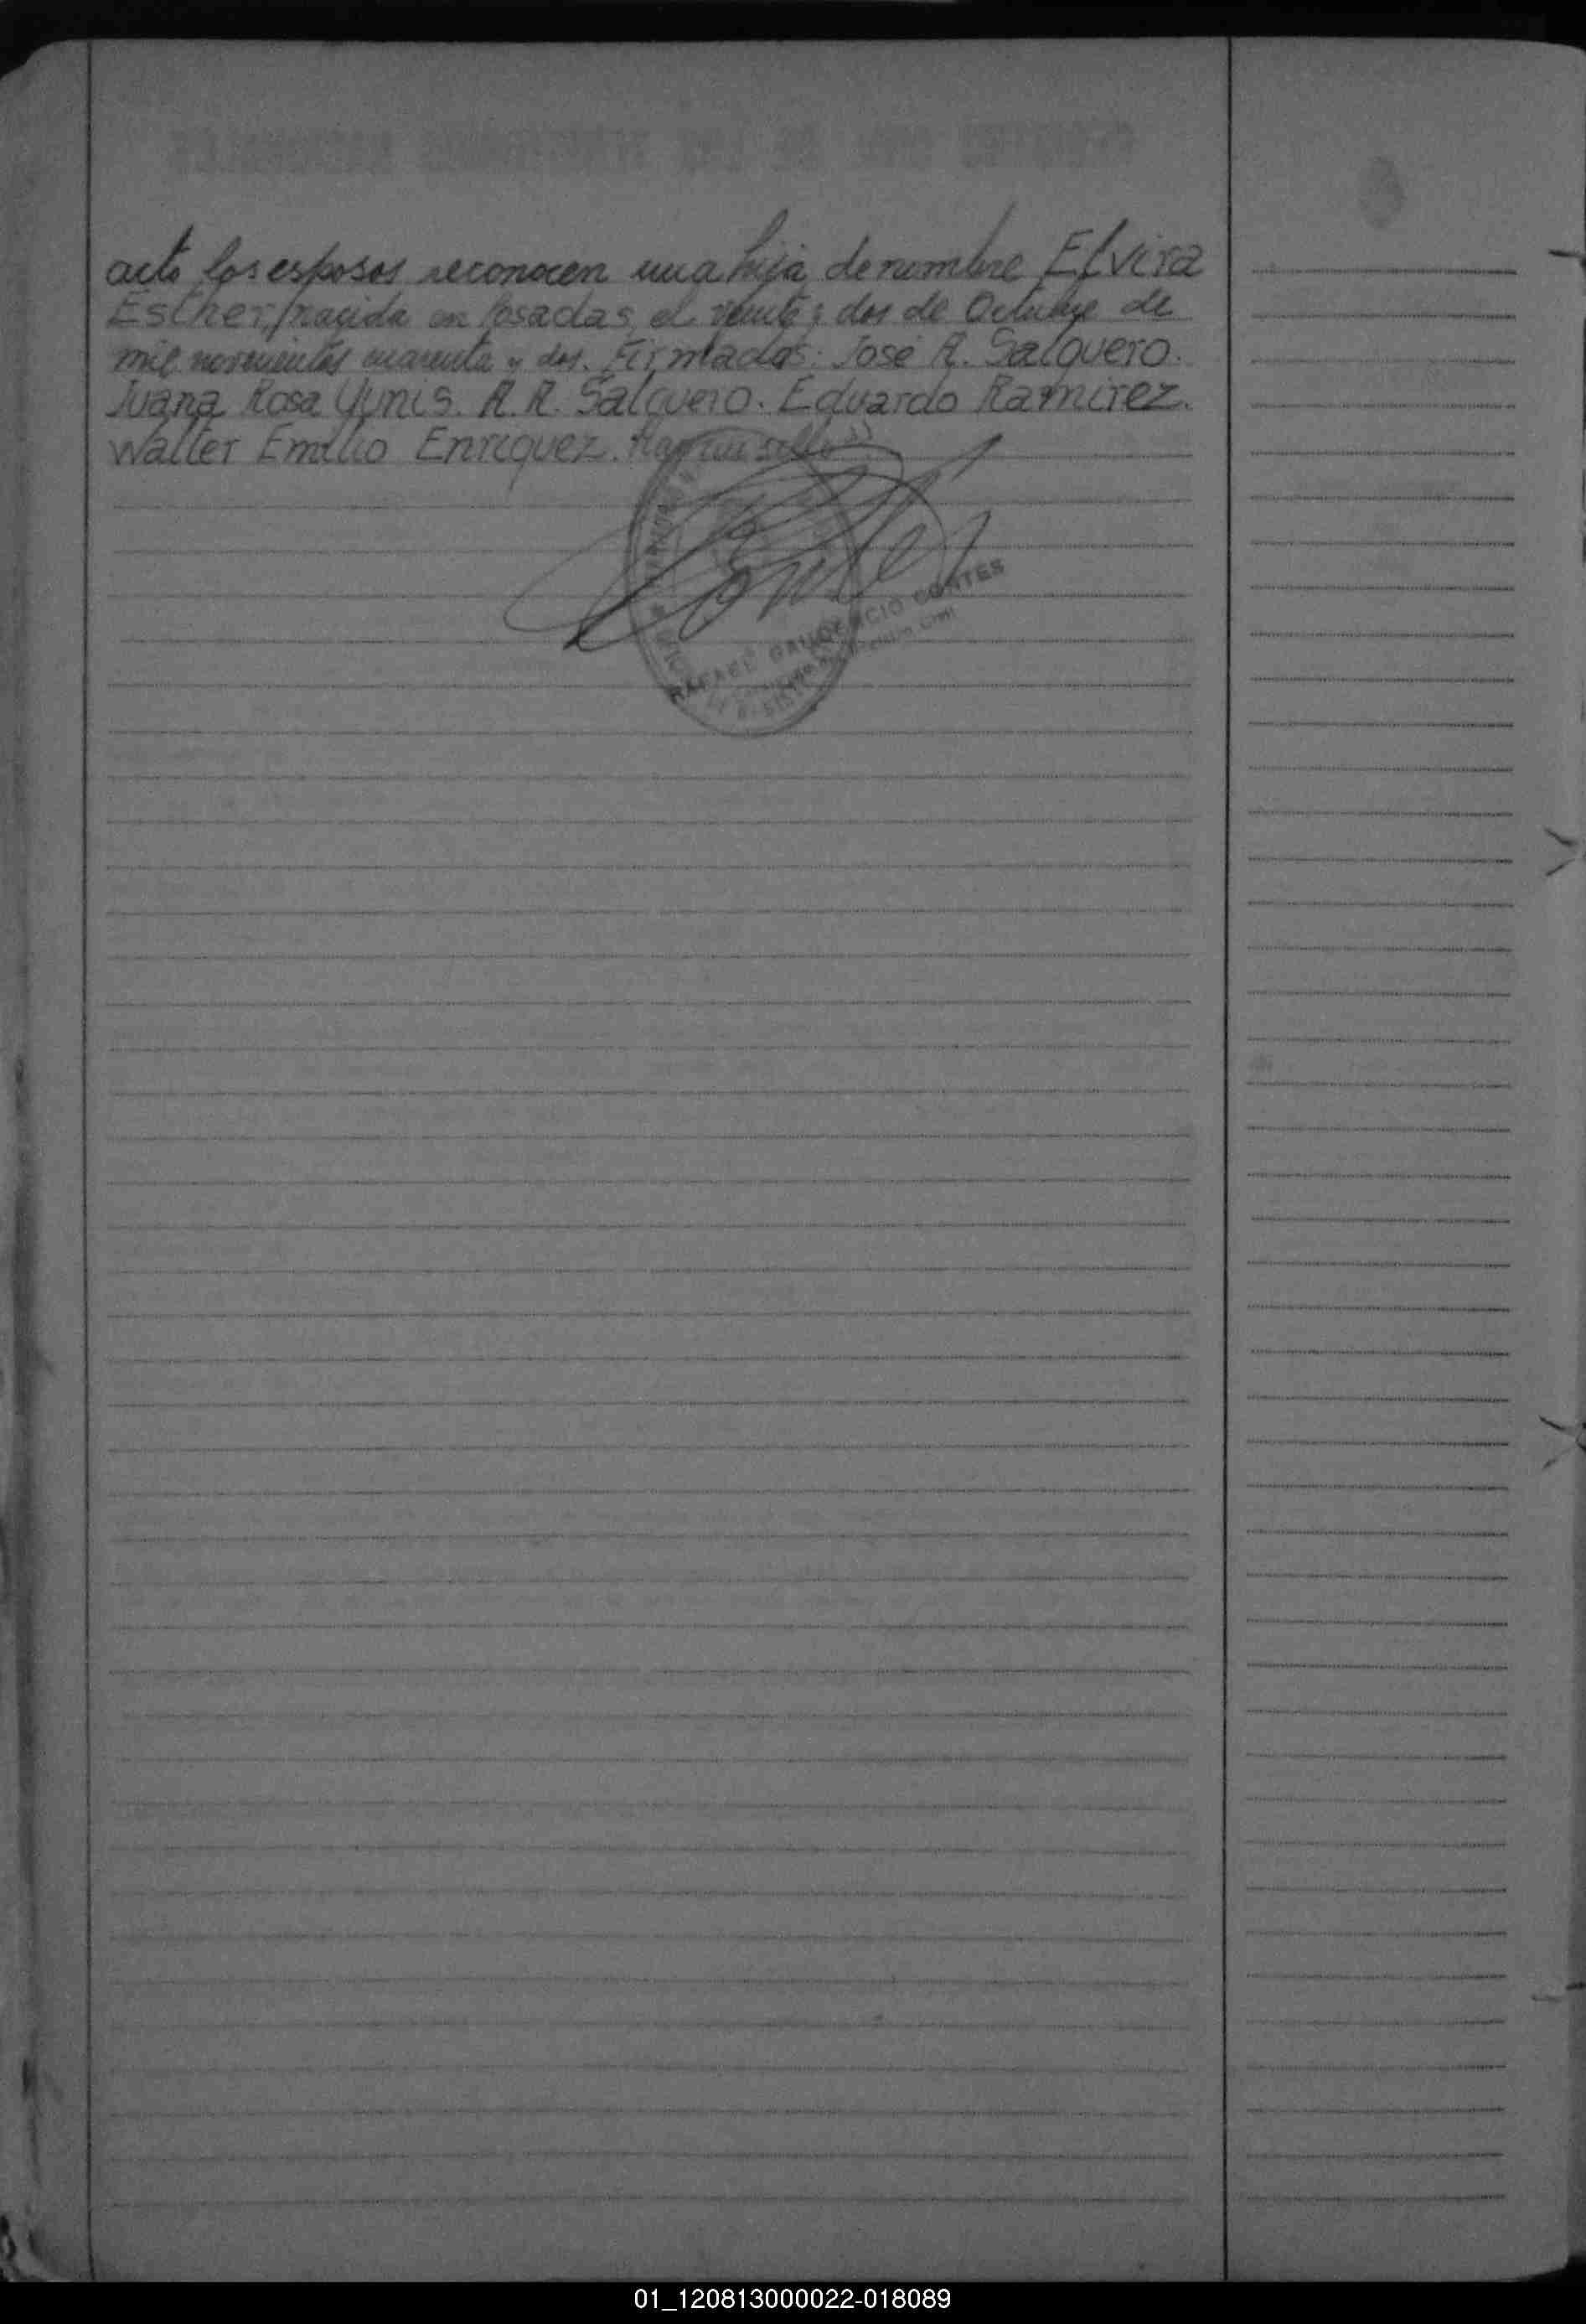 acto los esposos reconocen una hija de nombre Elvira
Esther, nacida en Posadas, el veinte y dos de Octubre de
mil novecientos cuarenta y dos. Firmados: José A. Salguero.
Juana Rosa Yunis. A. R. Salguero. Eduardo Ramirez.
Walter Emilio Enriquez. Hay un sello
RAFAEL GAUDENCIO CORTES
01_120813000022-018089